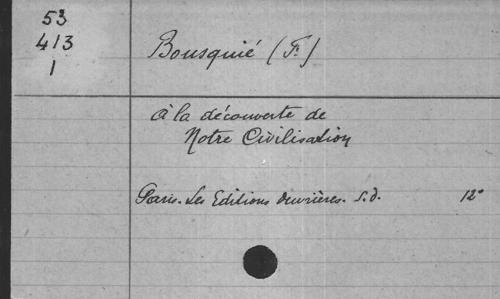 53
413
1
Bousquié (F.)
à la découverte de
Notre Civilisation
Paris. Les Editions ouvrières. s.d. 12°